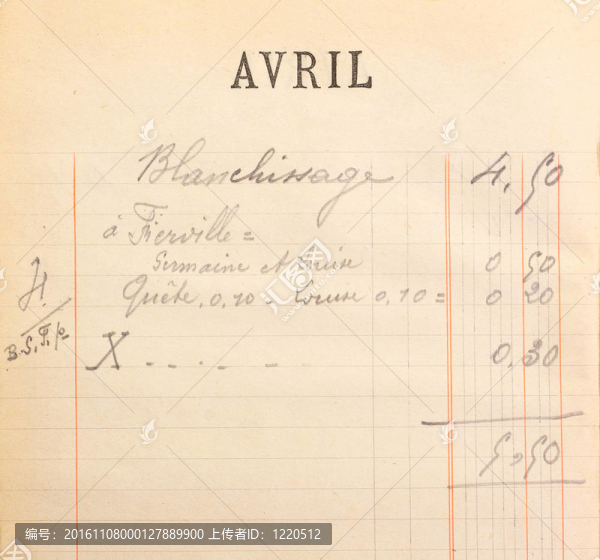 AVRIL
Blanchissage 4,50
à Fierville =
Germaine et Louise 0 50
Quête 0,10 - Louise 0,10 = 0 20
H.
B.S.
X . . . . - - - 0,30
5,50
编号：20161108000127889900 上传者ID：1220512